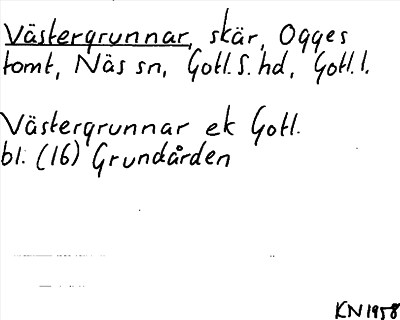 Västergrunnar, skär, Ogges
tomt, Näs sn, Gotl. S. hd, Gotl. l.
Västergrunnar ek Gotl.
bl. (16) Grundården
KN 1958